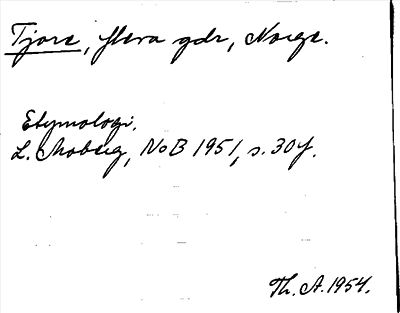 Tjora, flera gdr, Norge.
Etymologi.
L. Moberg, NoB 1951, s. 30f.
Th. A. 1954.